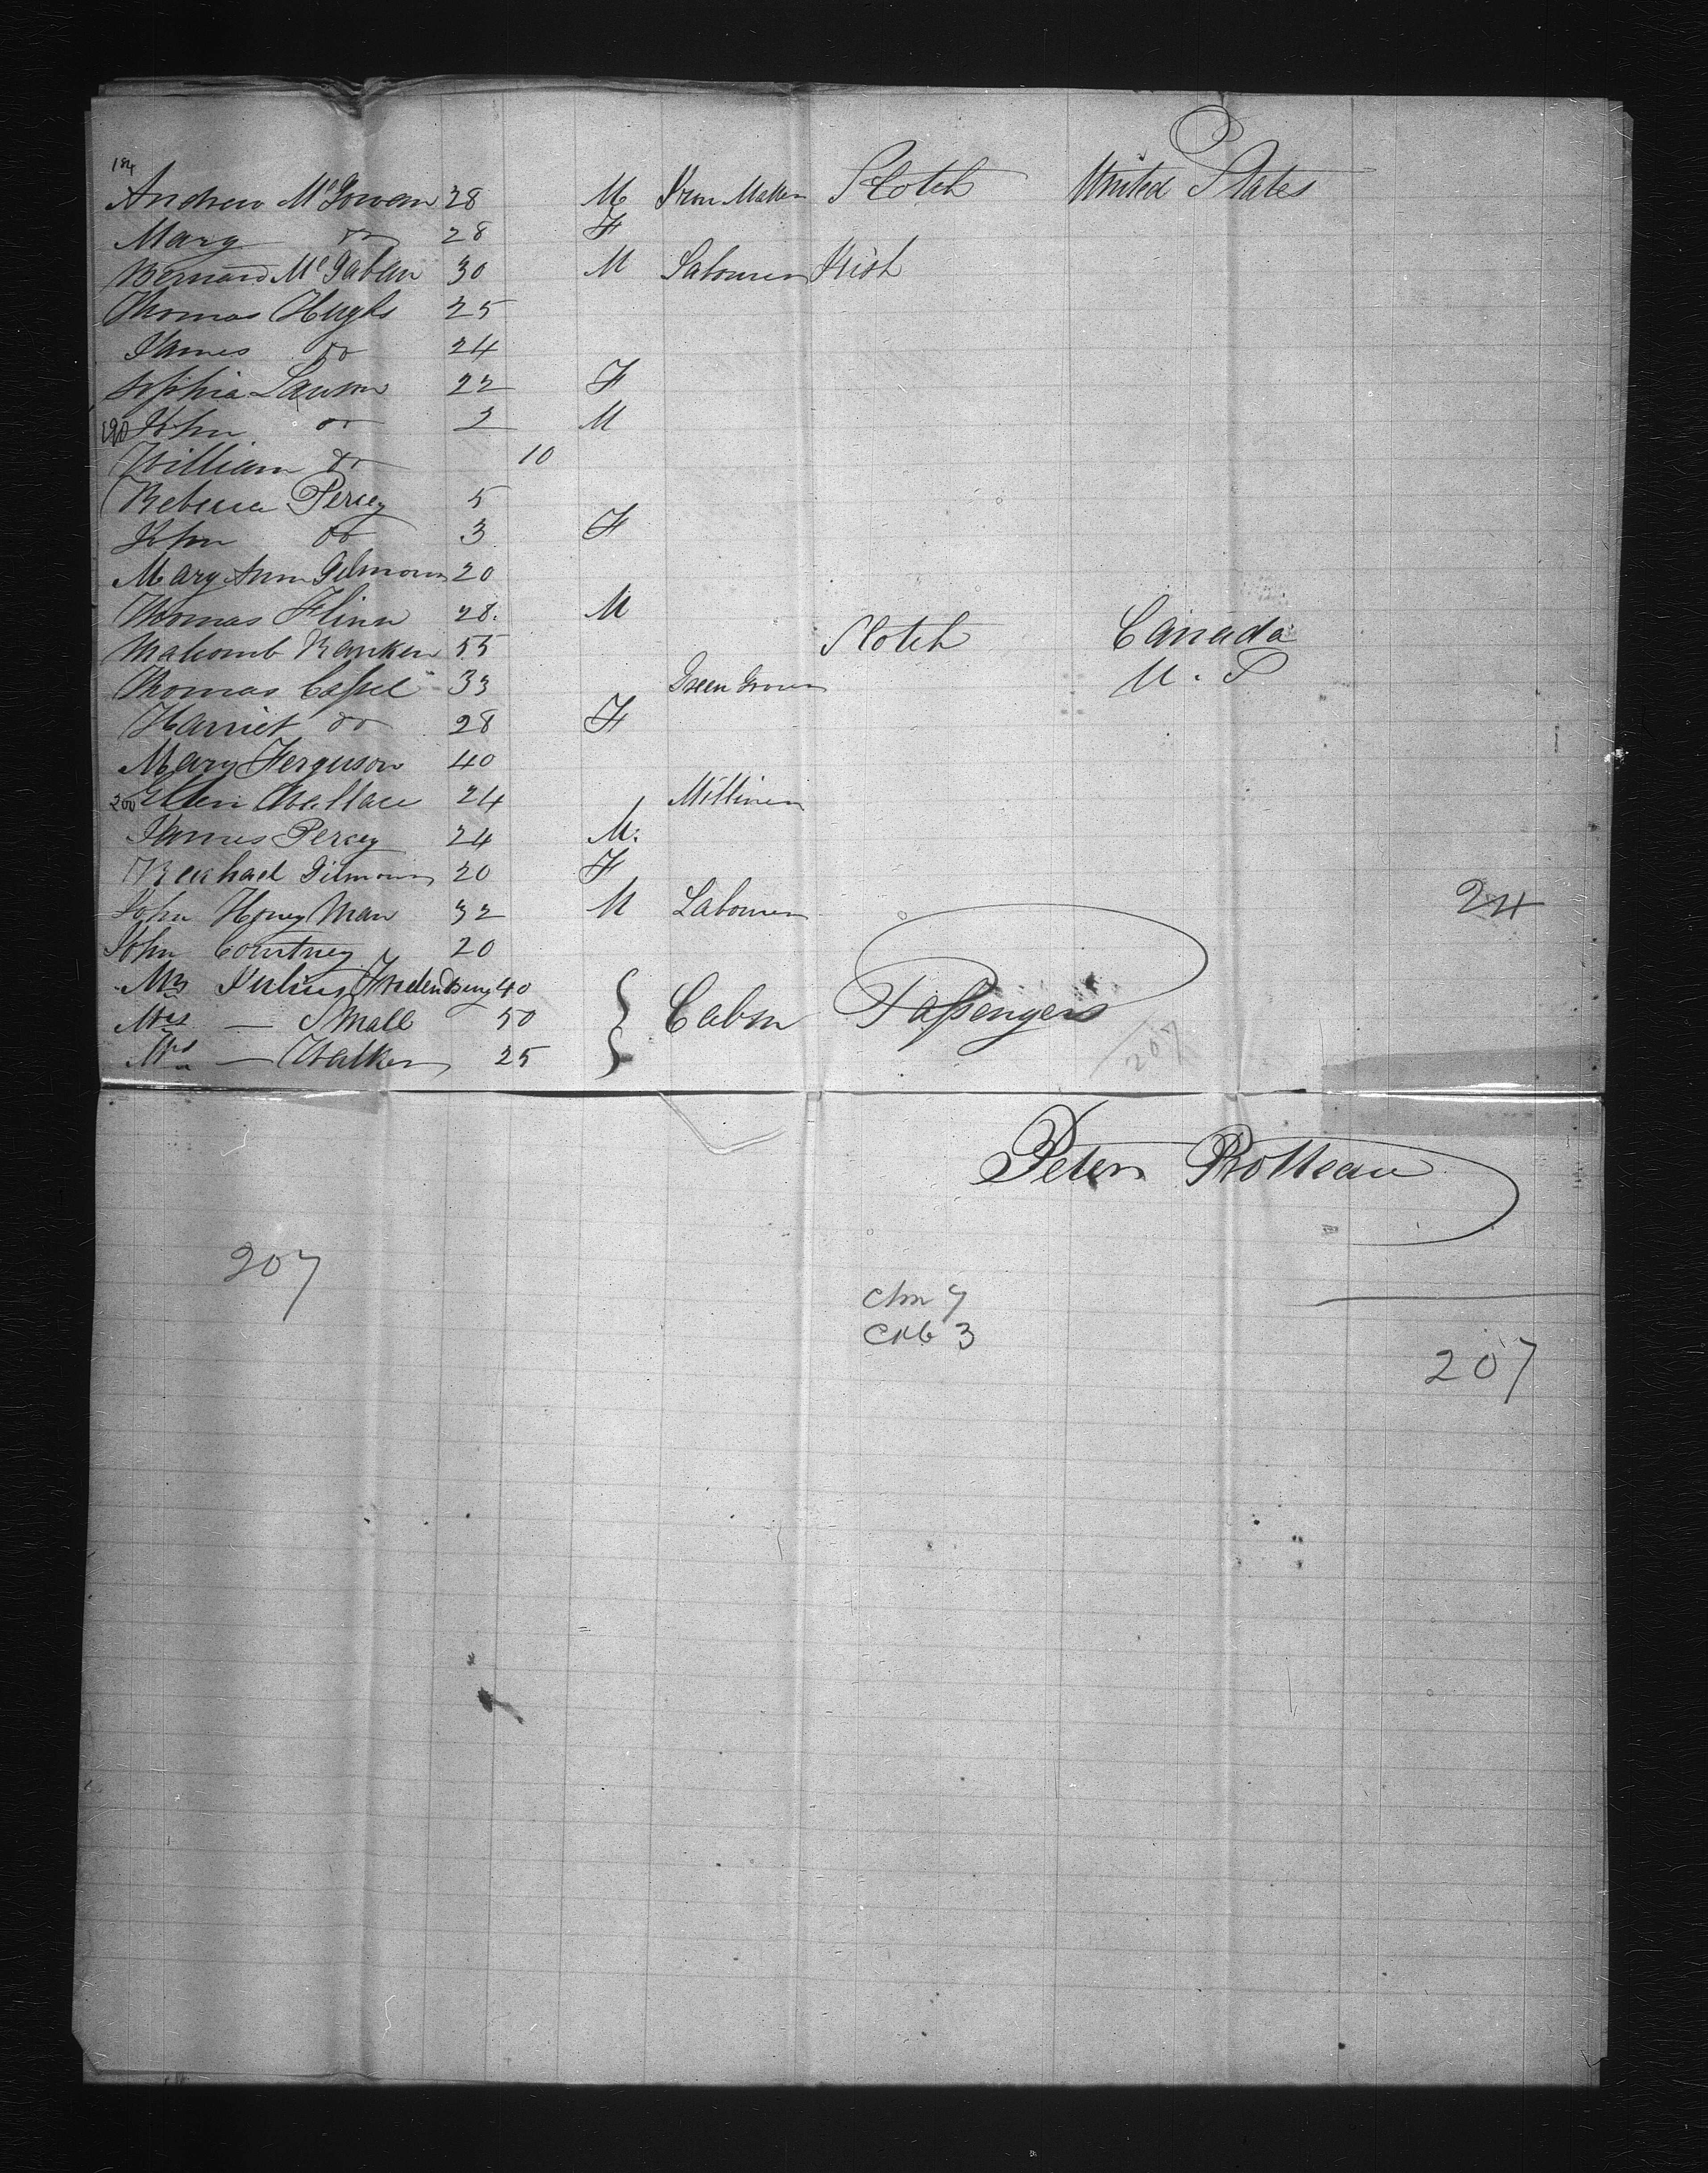 184
Andrew McGowan 28 M Iron Maker Scotch United States
Mary do 28 F
Bernard McGaban 30 M Labourer Irish
Thomas Hughs 25
James do 24
Sophia Lawson 22 F
190 John do 2 M
William do 10
Rebecca Percey 5
John do 3 F
Mary Ann Gilmour 20
Thomas Flinn 28. M
Malcomb Ranken 55 Scotch Canada
Thomas Cassel 33 Green Grocer U. S
Harriet do 28 F
Mary Ferguson 40
200 Ellen Wallace 24 Milliner
James Percey 24 M.
Reachael Gilmour 20 F
John Honey Man 32 M Labourer 24
John Courtney 20
Mr Julius 40
Mrs — Small 50 Cabin Passengers
Mrs — Walker 25
207
Peter Rotteau
207
Chn 7
Cab 3
207